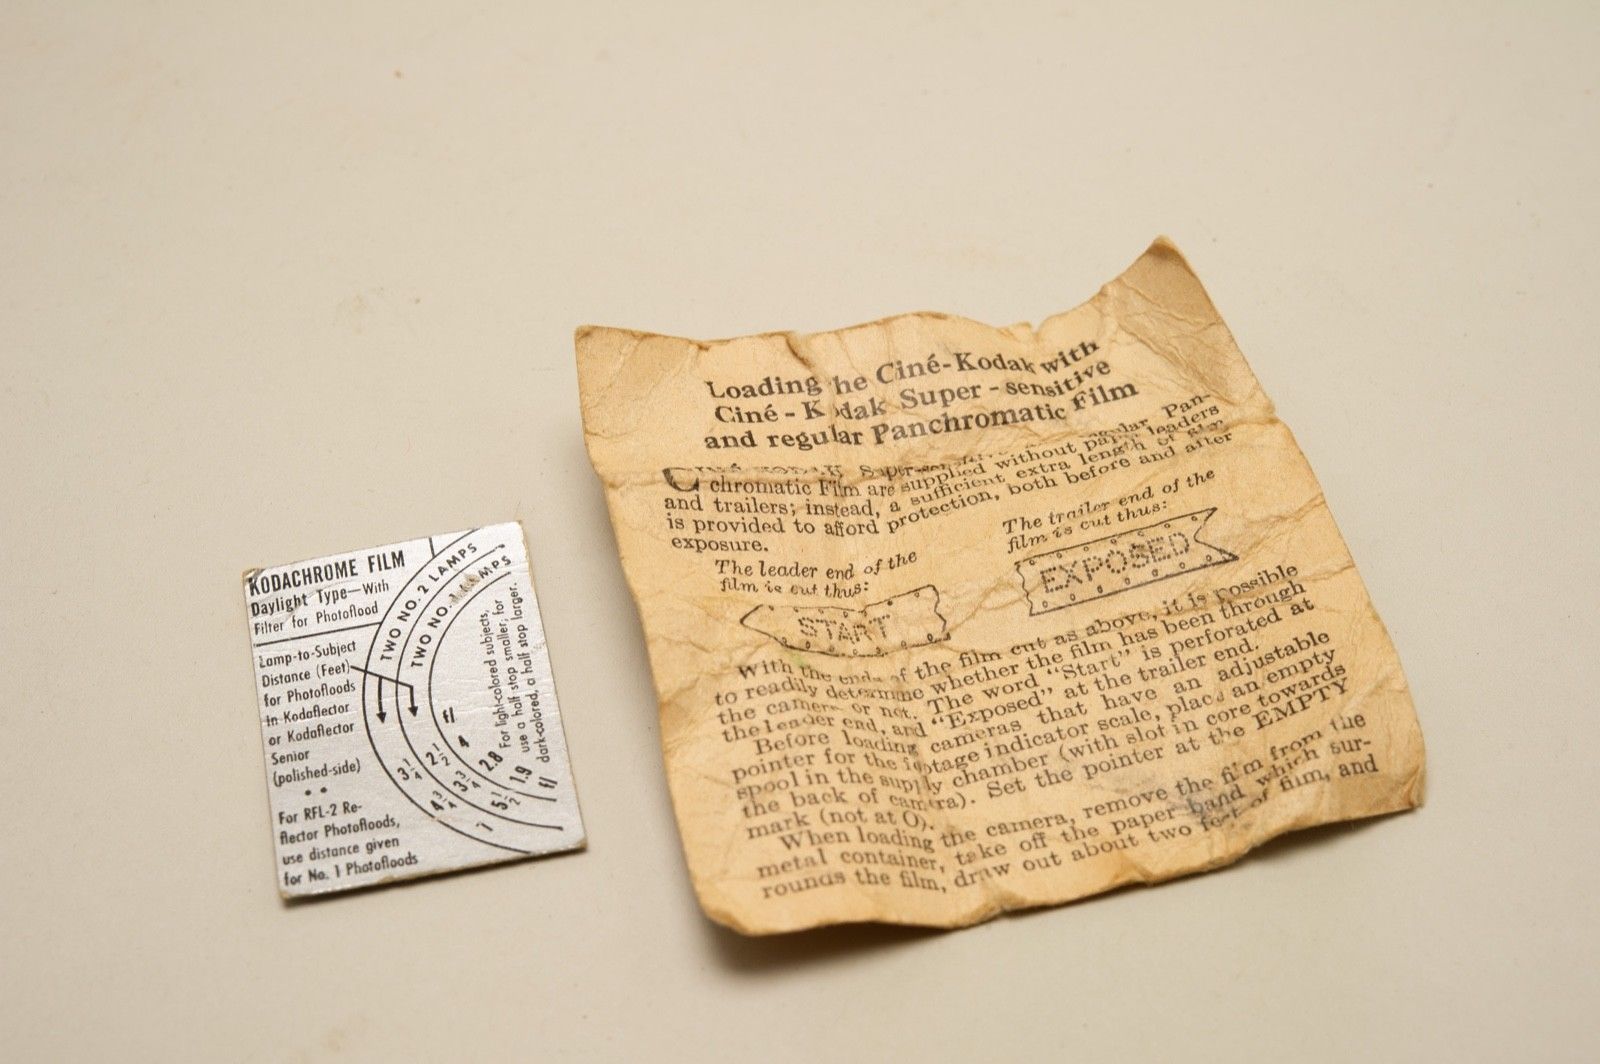 KODACHROME FILM
Daylight Type—With
Filter for Photoflood
Lamp-to-Subject
Distance (Feet)
for Photofloods
in Kodaflector
or Kodaflector
Senior
(polished-side)
• •
For RFL-2 Re-
flector Photofloods,
use distance given
for No. 1 Photofloods
TWO NO. 2 LAMPS
TWO NO. LAMPS
3¼ 2½ f/
4¾ 3¾ 4
7 5½ 2.8
1.9
f/
For light-colored subjects,
use a half stop smaller; for
dark-colored, a half stop larger.
Loading he Ciné-Kodak with
Ciné-Kodak Super-sensitive
and regular Panchromatic Film
CINÉ-KODAK Super-sensitive regular Pan-
chromatic Film are supplied without paper leaders
and trailers; instead, a sufficient extra length of film
is provided to afford protection, both before and after
exposure.
The leader end of the
film is cut thus:
START
The trailer end of the
film is cut thus:
EXPOSED
With the ends of the film cut as above, it is possible
to readily determine whether the film has been through
the camera or not. The word "Start" is perforated at
the leader end, and "Exposed" at the trailer end.
Before loading cameras that have an adjustable
pointer for the footage indicator scale, place an empty
spool in the supply chamber (with slot in core towards
the back of camera). Set the pointer at the EMPTY
mark (not at O).
When loading the camera, remove the film from the
metal container, take off the paper band which sur-
rounds the film, draw out about two feet of film, and